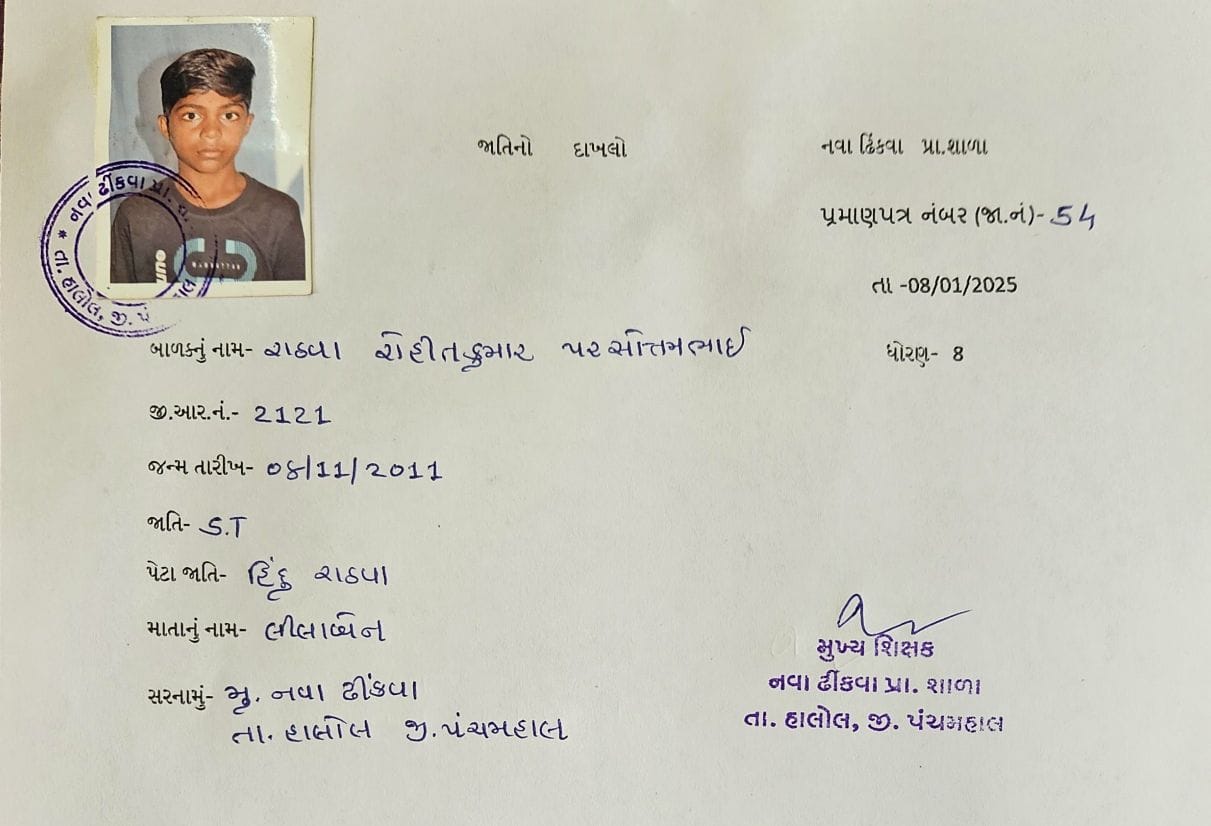 જાતિનો દાખલો
નવા ઢિંકવા પ્રા.શાળા
પ્રમાણપત્ર નંબર (જા.નં)- 54
તા -08/01/2025
નવા ઢીંકવા પ્રા.
તા. હાલોલ, જી. પં
બાળકનું નામ- રાઠવા રોહીતકુમાર પરસોત્તમભાઈ
ધોરણ- 8
જી.આર.નં.- 2121
જન્મ તારીખ- 04/11/2011
જાતિ- S.T
પેટા જાતિ- હિંદુ રાઠવા
માતાનું નામ- લીલાબેન
સરનામું- મુ. નવા ઢીંકવા
તા. હાલોલ જી. પંચમહાલ
મુખ્ય શિક્ષક
નવા ઢીંકવા પ્રા. શાળા
તા. હાલોલ, જી. પંચમહાલ